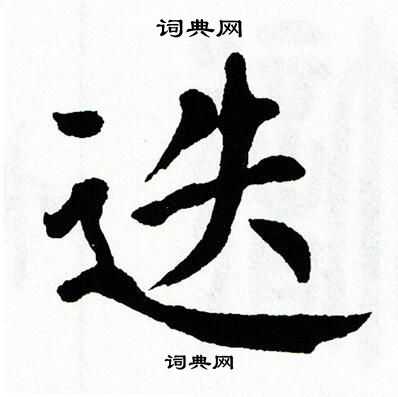 词典网
迭
词典网